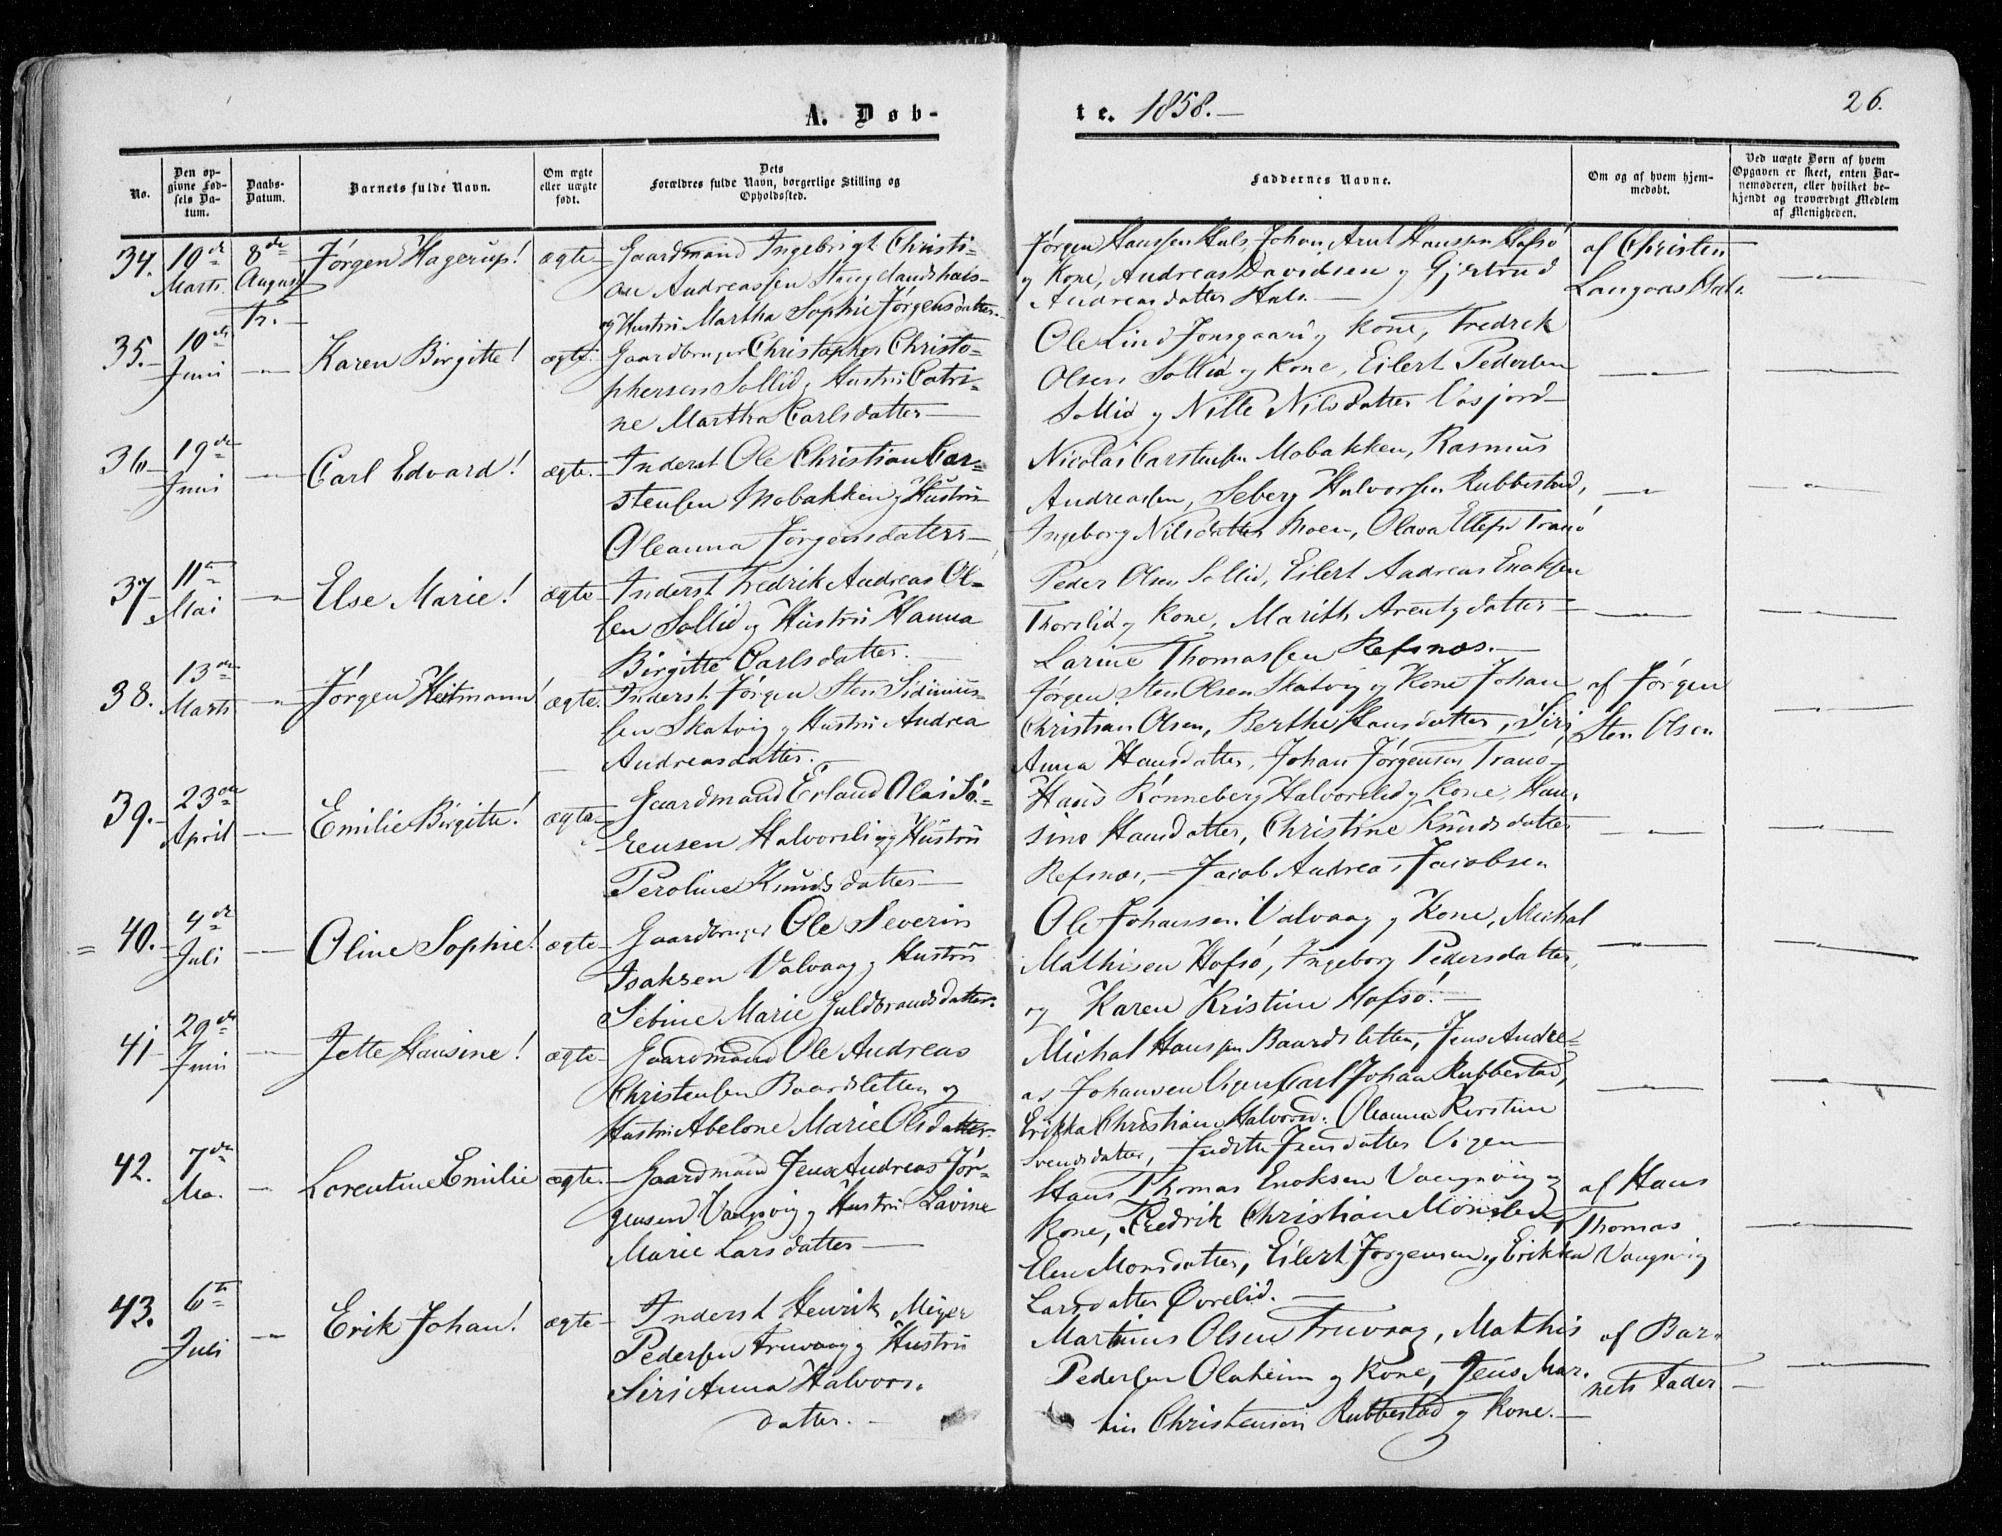 A. Døb-
te. 1858.—
26.
No.
Den op-
givne Fød-
sels Da-
tum.
Daabs-
Datum.
Barnets fulde Navn.
Om ægte
eller uægte
født.
Dets
Forældres fulde Navn, borgerlige Stilling og
Opholdssted.
Faddernes Navne.
Om og af hvem hjem-
medøbt.
Ved uægte Børn af hvem
Opgaven er skeet, enten Bar-
nemoderen, eller hvilket be-
kjendt og troværdigt Medlem
af Menigheden.
34.
19de
Marts
8de
August
Tr.
Jørgen Hagerup!
ægte
Gaardmand Ingebrigt Christi-
an Andreassen Stanglandshals-
og Hustru Martha Sophie Jørgensdatter.
Jørgen Hanssen Hals, Johan Arnt Hansen Hofsø
og Kone, Andreas Davidsen og Gjertrud
Andreasdatter Hals.
af Christen
Langaas Hals
35.
10de
Juni
Karen Birgitte!
ægte
Gaardbruger Christopher Christo-
phersen Sollid og Hustru Catri-
ne Martha Carlsdatter
Ole Lind Jonsgaard og Kone, Fredrik
Olsen Sollid og Kone, Eilert Pedersen
Sollid og Nille Nilsdatter Vasjord
36
19de
Juni
Carl Edvard!
ægte.
Inderst Ole Christian Car-
stensen Mobakken og Hustru
Oleanna Jørgensdatter
Nicolai Carstensen Mobakken, Rasmus
Andreassen, Seberg Halvorsen Rubbestad,
Ingeborg Nilsdatter Moen, Olava Ellefs Tranø
37
11te
Mai
Else Marie!
ægte
Inderst Fredrik Andreas Ol-
sen Sollid og Hustru Hanna
Birgitte Carlsdatter.
Peder Olsen Sollid, Eilert Andreas Enoksen
Thorslid og Kone, Marith Arentsdatter
Larine Thomassen Refsnæs.
38.
13de
Marts
Jørgen Heitmann!
ægte.
Inderst Jørgen Sten Sidinius-
sen Skatvig og Hustru Andrea
Andreasdatter.
Jørgen Sten Olsen Skatvig og Kone Johan
Christian Olsen, Berthe Hansdatter, Siri
Anna Hansdatter, Johan Jørgensen Tranø
af Jørgen
Sten Olsen
39.
23de
April
Emilie Birgitte!
ægte
Gaardmand Erland Olai Sø-
rensen Halvorsli og Hustru
Peroline Knudsdatter
Hans Rønneberg Halvorslid og Kone, Han-
sine Hansdatter, Christine Knudsdatter
Refsnæs, Jacob Andreas Jacobsen
40.
4de
Juli
Oline Sophie!
ægte
Gaardbruger Ole Severin
Isaksen Valvaag og Hustru
Sebine Marie Guldbrandsdatter.
Ole Johanssen Valvaag og Kone, Michal
Mathisen Hofsø, Ingeborg Pedersdatter,
og Karen Kristine Hofsø.
41
29de
Juni
Jette Hansine!
ægte
Gaardmand Ole Andreas
Christensen Baardsletten og
Hustru Abelone Marie Olsdatter.
Michal Hanssen Baardsletten, Jens Andre-
as Johansen Vigen Carl Johan Rubbestad,
Erikka Christiane Halvorsd. Oleanna Kirstine
Svendsdatter, Judith Jensdatter Vigen
42.
7de
Ma.
Lorentine Emilie
ægte.
Gaardmand Jens Andreas Jør-
gensen Vangsvig og Hustru Lavine
Marie Larsdatter
Hans Thomas Enoksen Vangsvig og
Kone, Fredrik Christian Monsen,
Elen Monsdatter, Eilert Jørgensen og Erikka
Larsdatter Øvrelid.
af Hans
Thomas
Vangsvig
43.
6te
Juli
Erik Johan!
ægte
Inderst Henrik Meyer
Pedersen Truvaag og Hustru
Siri Anna Halvors-
datter.
Martinus Olsen Truvaag, Mathis
Pedersen Olaheim og Kone, Jens Mar-
tin Christensen Rubbestad og Kone.
af Bar-
nets Fader